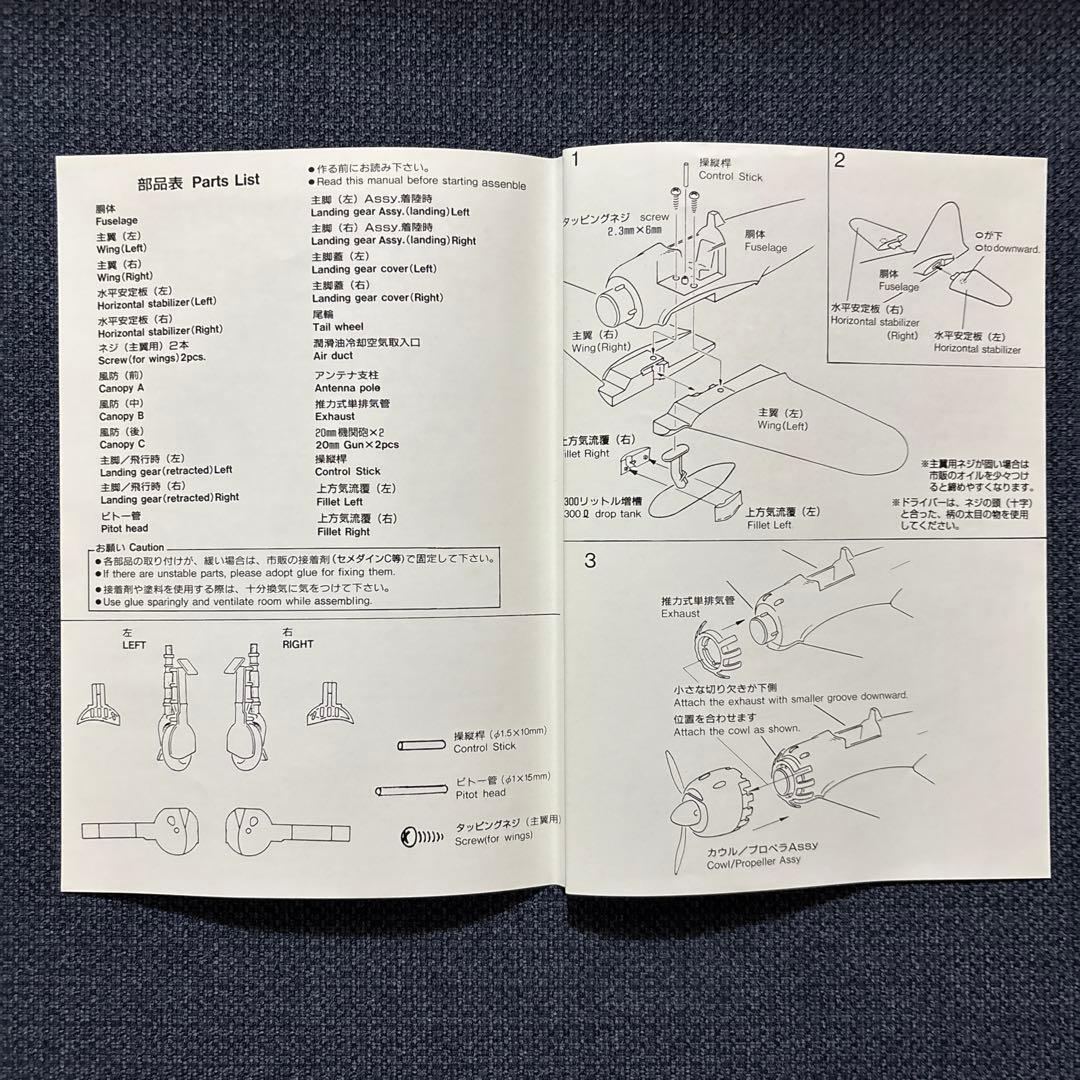 部品表 Parts List
●作る前にお読み下さい。
●Read this manual before starting assenble
胴体
Fuselage
主翼（左）
Wing(Left)
主翼（右）
Wing(Right)
水平安定板（左）
Horizontal stabilizer(Left)
水平安定板（右）
Horizontal stabilizer(Right)
ネジ（主翼用）2本
Screw(for wings)2pcs.
風防（前）
Canopy A
風防（中）
Canopy B
風防（後）
Canopy C
主脚／飛行時（左）
Landing gear(retracted)Left
主脚／飛行時（右）
Landing gear(retracted)Right
ピトー管
Pitot head
主脚（左）Assy.着陸時
Landing gear Assy.(landing)Left
主脚（右）Assy.着陸時
Landing gear Assy.(landing)Right
主脚蓋（左）
Landing gear cover(Left)
主脚蓋（右）
Landing gear cover(Right)
尾輪
Tail wheel
潤滑油冷却空気取入口
Air duct
アンテナ支柱
Antenna pole
推力式単排気管
Exhaust
20mm機関砲×2
20mm Gun×2pcs
操縦桿
Control Stick
上方気流覆（左）
Fillet Left
上方気流覆（右）
Fillet Right
お願い Caution
●各部品の取り付けが、緩い場合は、市販の接着剤（セメダインC等）で固定して下さい。
●If there are unstable parts, please adopt glue for fixing them.
●接着剤や塗料を使用する際は、十分換気に気をつけて下さい。
●Use glue sparingly and ventilate room while assembling.
左
LEFT
右
RIGHT
操縦桿（φ1.5×10mm）
Control Stick
ピトー管（φ1×15mm）
Pitot head
タッピングネジ（主翼用）
Screw(for wings)
1
操縦桿
Control Stick
タッピングネジ screw
2.3mm×6mm
胴体
Fuselage
主翼（右）
Wing(Right)
主翼（左）
Wing(Left)
上方気流覆（右）
illet Right
300リットル増槽
300ℓ drop tank
上方気流覆（左）
Fillet Left
※主翼用ネジが固い場合は
市販のオイルを少々つけ
ると締めやすくなります。
※ドライバーは、ネジの頭（十字）
と合った、柄の太目の物を使用
してください。
2
○が下
○to downward.
胴体
Fuselage
水平安定板（右）
Horizontal stabilizer
(Right)
水平安定板（左）
Horizontal stabilizer
3
推力式単排気管
Exhaust
小さな切り欠きが下側
Attach the exhaust with smaller groove downward.
位置を合わせます
Attach the cowl as shown.
カウル／プロペラAssy
Cowl/Propeller Assy